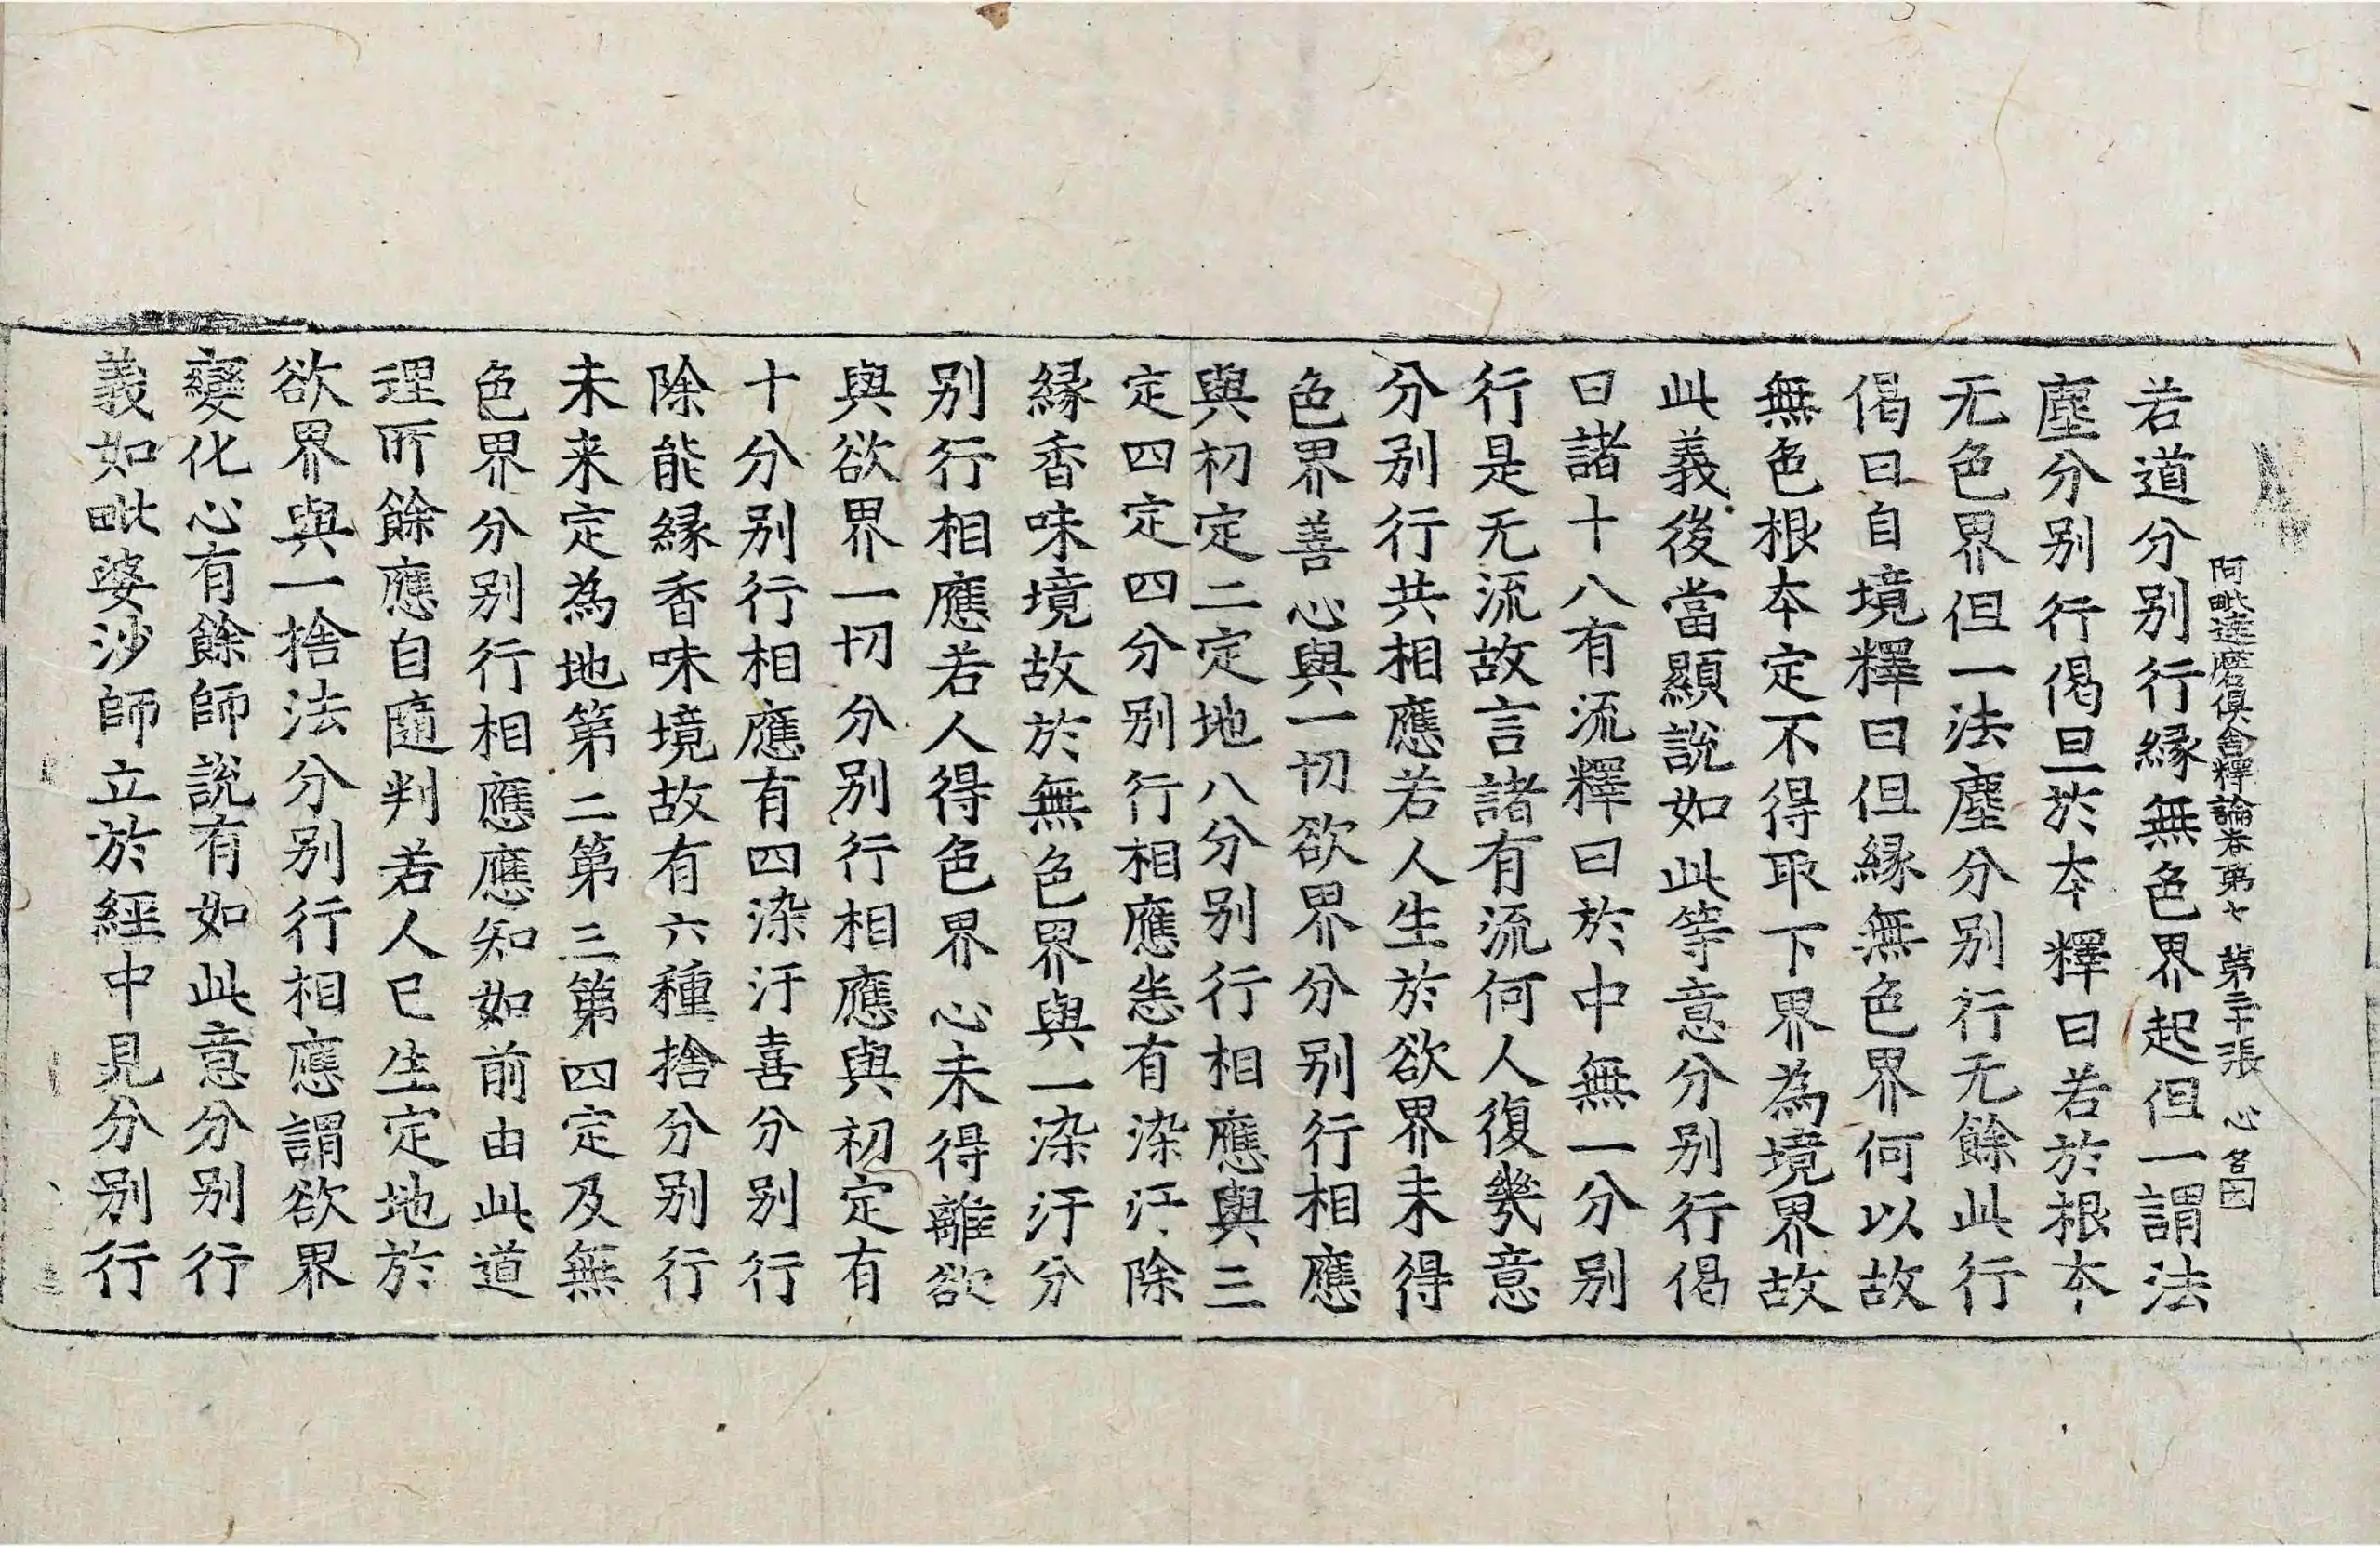 阿毗達磨俱舍釋論卷第七 第二十張 心 名因
若道分别行緣無色界起但一謂法
塵分别行偈旦於本釋曰若於根本
无色界但一法塵分别行无餘此行
偈曰自境釋曰但緣無色界何以故
無色根本定不得取下界為境界故
此義後當顯說如此等意分别行偈
曰諸十八有流釋曰於中無一分别
行是无流故言諸有流何人復幾意
分别行共相應若人生於欲界未得
色界善心與一切欲界分别行相應
與初定二定地八分别行相應與三
定四定四分别行相應恙有染汙除
緣香味境故於無色界與一染汙分
别行相應若人得色界心未得離欲
與欲界一切分别行相應與初定有
十分别行相應有四染汙喜分别行
除能緣香味境故有六種捨分别行
未来定為地第二第三第四定及無
色界分别行相應應知如前由此道
理所餘應自隨判若人已生定地於
欲界與一捨法分别行相應謂欲界
變化心有餘師說有如此意分别行
義如毗婆沙師立於經中見分别行